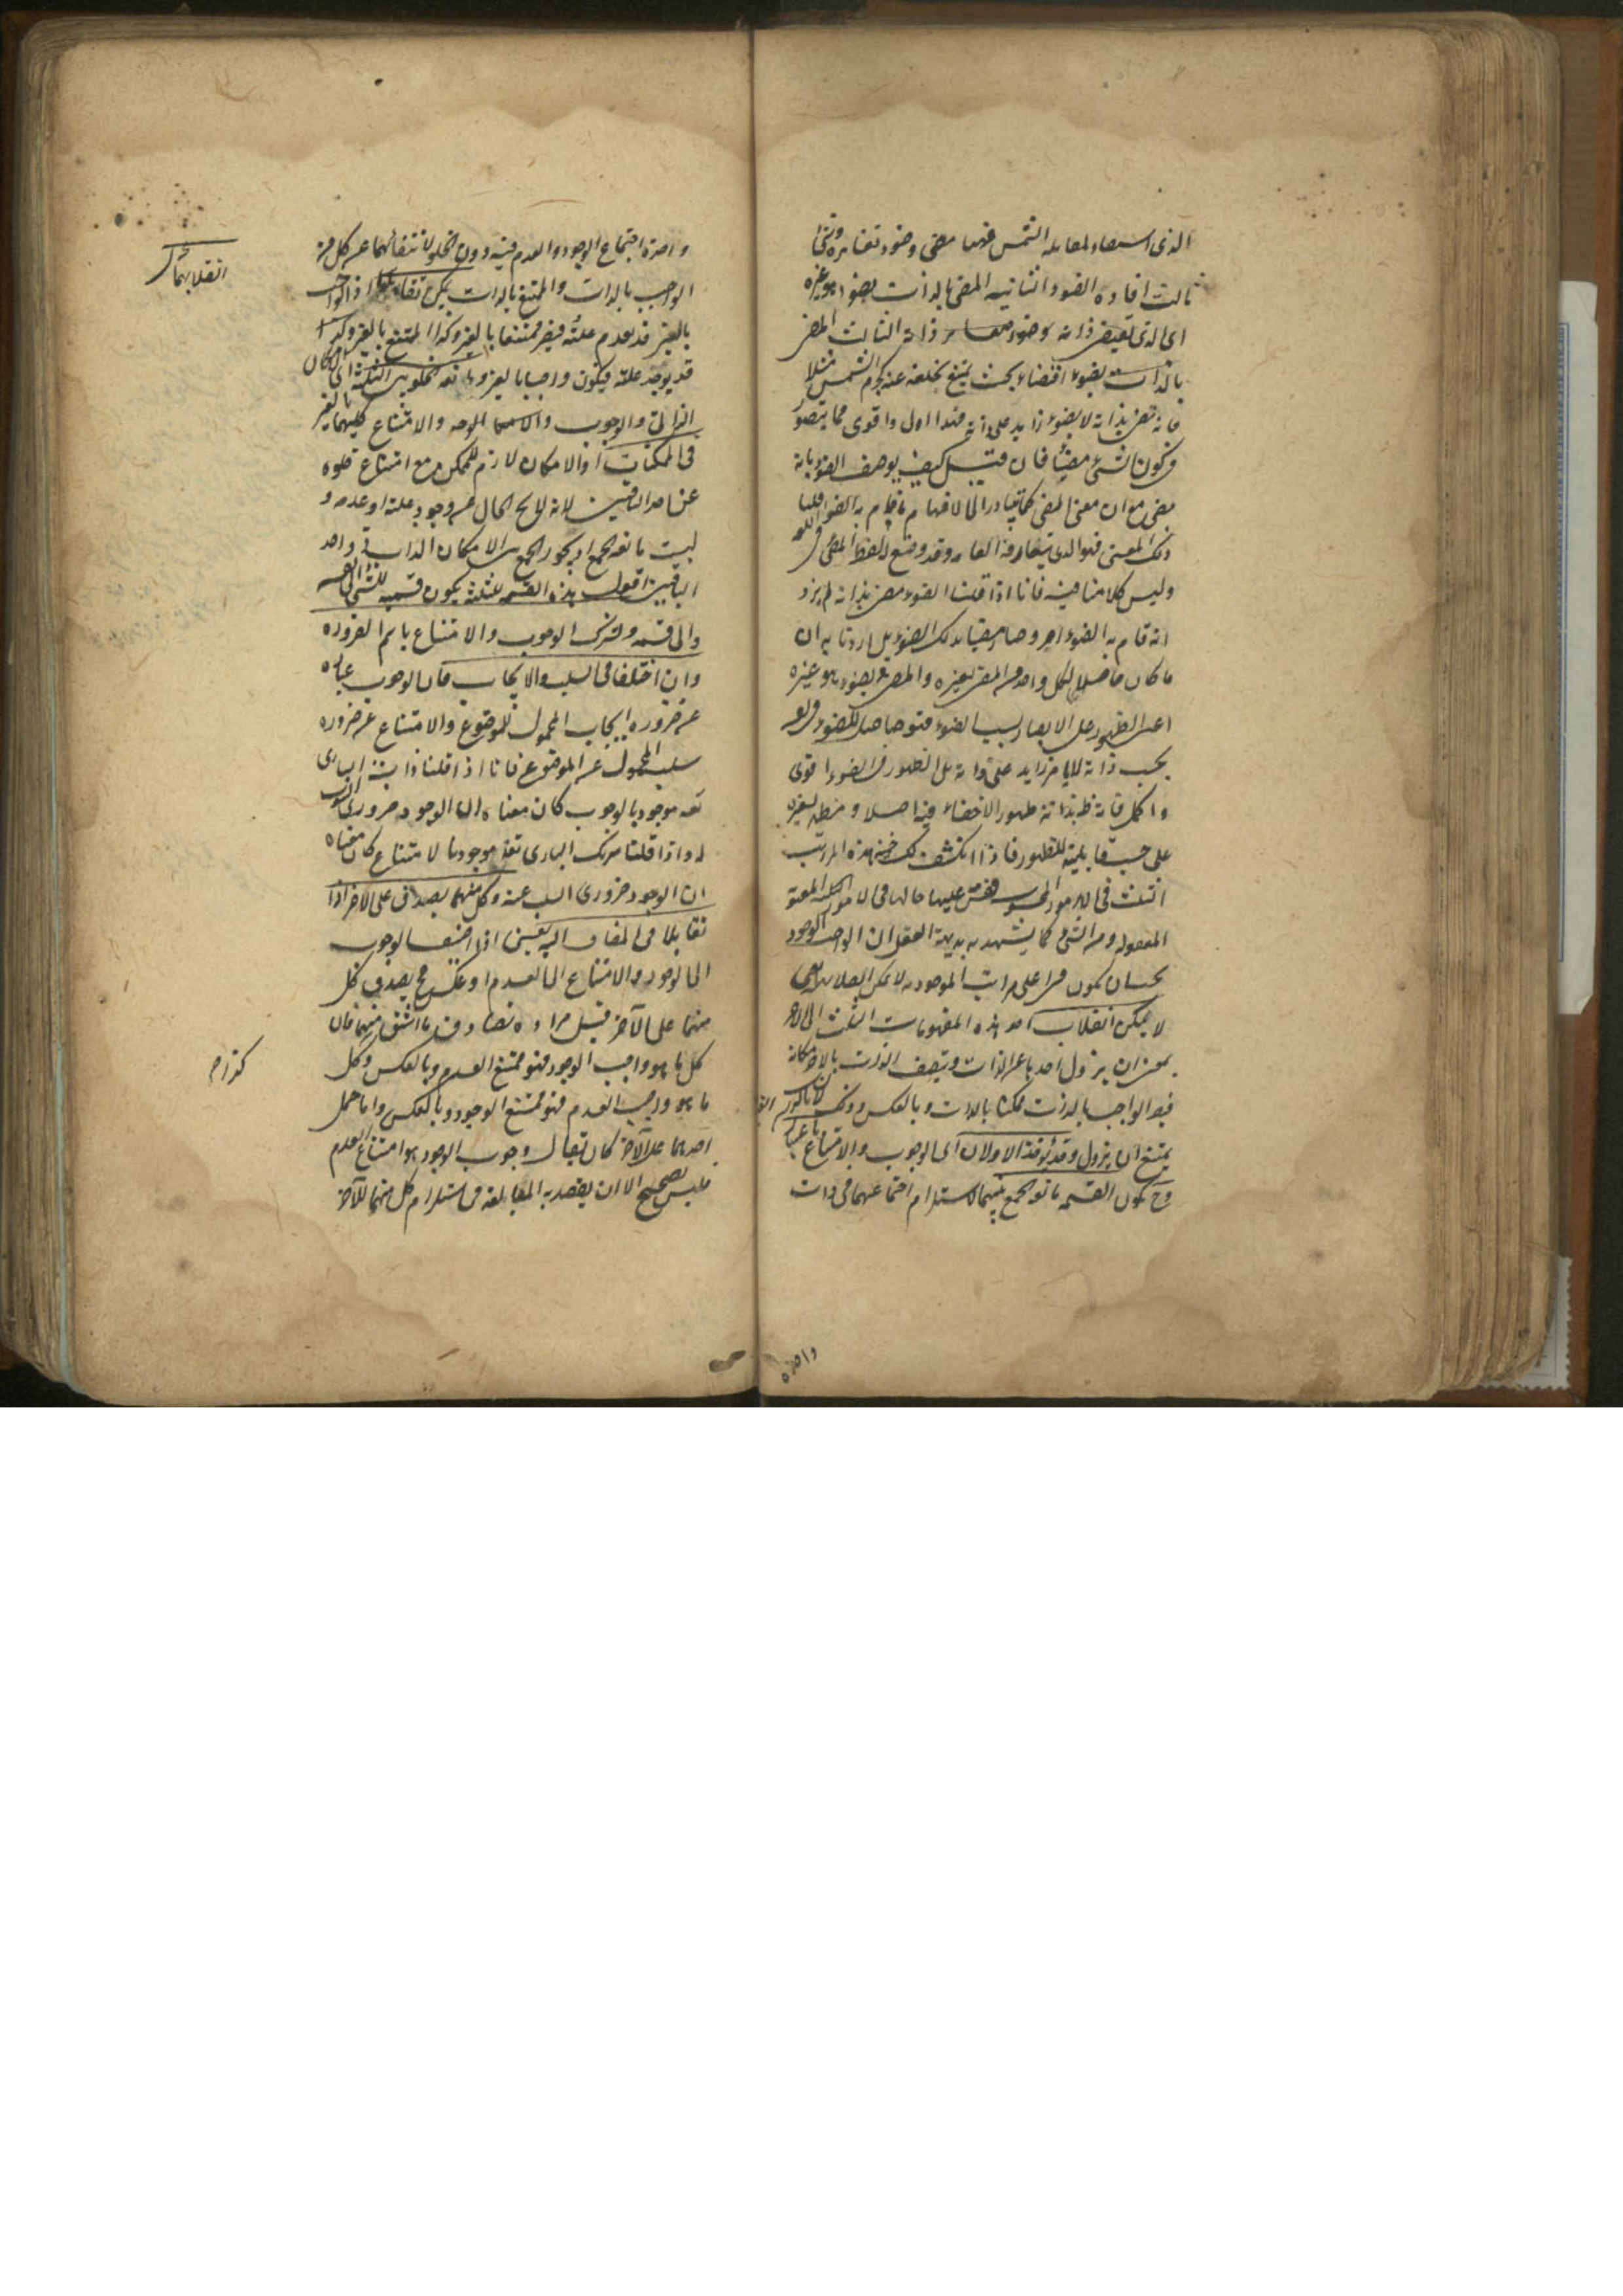 الذى استضاء لمقابلة الشمس فهنا مضى وضوء تغايره وشئ
ثالث افاده الضوء الثانية المضى بالذات بضوء هو غيره
اى الذى تقيض ذاته ضوءه ذاته الثالث المضى
بالذات بضوء اقتضاء بحيث يمتنع تخلفه عنه كجرم الشمس مثلا
فانه مضى بذاته لا بضوء زايد على ذاته فهذا اولى واقوى مما يتصور
فى كون الشئ مضيئا فان قيل كيف يوصف الضوء بانه
مضى مع ان معنى المضى كما يتبادر الى الافهام ما قام به الضوء قلنا
ذلك المعنى هو الذى يتعارفه العامه وقد وضع له لفظ المضئ فى اللغه
وليس كلامنا فيه فانا اذا قلنا الضوء مضى بذاته لم نرد
انه قام به الضوء اخر وصار مضيئا بذلك الضوء بل اردنا به ان
ما كان حاصلا لكل واحد من المضى بغيره والمضى بضوء هو غيره
اعنى الظهور على الابصار بسبب الضوء فهو حاصل للضوء فى نفسه
بحسب ذاته لا بامر زايد على ذاته بل الظهور فى الضوء اقوى
واكمل فانه ظ بذاته ظهورا لا خفاء فيه اصلا ومظهر لغيره
على حسب قابليته للظهور فاذا انكشف لك هذه المراتب
الثلث فى الامور المحسوسه فقس عليها حالها فى الامور
المعقوله ومن البين كما يشهد به بديهة العقل ان الواجب الوجود
يجب ان يكون فى اعلى مراتب الموجوديه
لا يمكن انقلاب احد هذه المفهومات الثلث الى الاخر
بمعنى ان يزول احدها عن الذات ويتصف الذات بالاخر مكانه
فيصير الواجب بالذات ممكنا بالذات وبالعكس وذلك لان ما بالذات
يمتنع ان يزول وقد يؤخذ الاولان اى الوجوب والامتناع باعتبار الغير
وح يكون القسمه مانعة الجمع بينهما لاستلزام اجتماعهما فى ذات
واحدة
واحدة اجتماع الوجود والعدم فيه دون الخلو لانتفائهما عن كل من
الواجب بالذات والممتنع بالذات يمكن انقلابهما اذ الواجب
بالغير قد يعدم علته فيصير ممتنعا بالغير وكذا الممتنع بالغير
قد يوجد علته فيكون واجبا بالغير ومانعه الخلو بين الثلثه اى الامكان
الذاتى والوجوب والامتناع كليهما بالغير
فى الممكنات اذ الامكان لازم للممكن مع امتناع خلوه
عن احد الباقيين لانه لا يخ الحال عن وجود علته او عدمه و
ليست مانعه الجمع اذ يجوز الجمع بين الامكان الذاتى واحد
الباقيين اقول هذه القسمه المثلثه يكون قسمه للشئ الى نفسه
والى قسمه ويشترك الوجوب والامتناع باسم الضروره
وان اختلفا فى السلب والايجاب فان الوجوب عباره
عن ضروره ايجاب المحمول للموضوع والامتناع عن ضروره
سلب المحمول عن الموضوع فانا اذا قلنا ذات البارى
تعه موجود بالوجوب كان معناه ان الوجود ضرورى الثبوت
له واذا قلنا شريك البارى تعه موجود بالامتناع كان معناه
ان الوجود ضرورى السلب عنه وكل منهما يصدق على الاخر اذا
تقابلا فى المضاف اليه يعنى اذا اضيف الوجوب
الى الوجود والامتناع الى العدم او عكس ح يصدق كل
منهما على الآخر قيل مراده تصادق ما اشتق منهما فان
كل ما هو واجب الوجود فهو ممتنع العدم وبالعكس وكل
ما هو واجب العدم فهو ممتنع الوجود وبالعكس واما حمل
احدهما على الآخر كان يقال وجوب الوجود هو امتناع العدم
فليس بصحيح الا ان يقصد به المبالغه فى استلزام كل منهما للآخر
انقلابهما